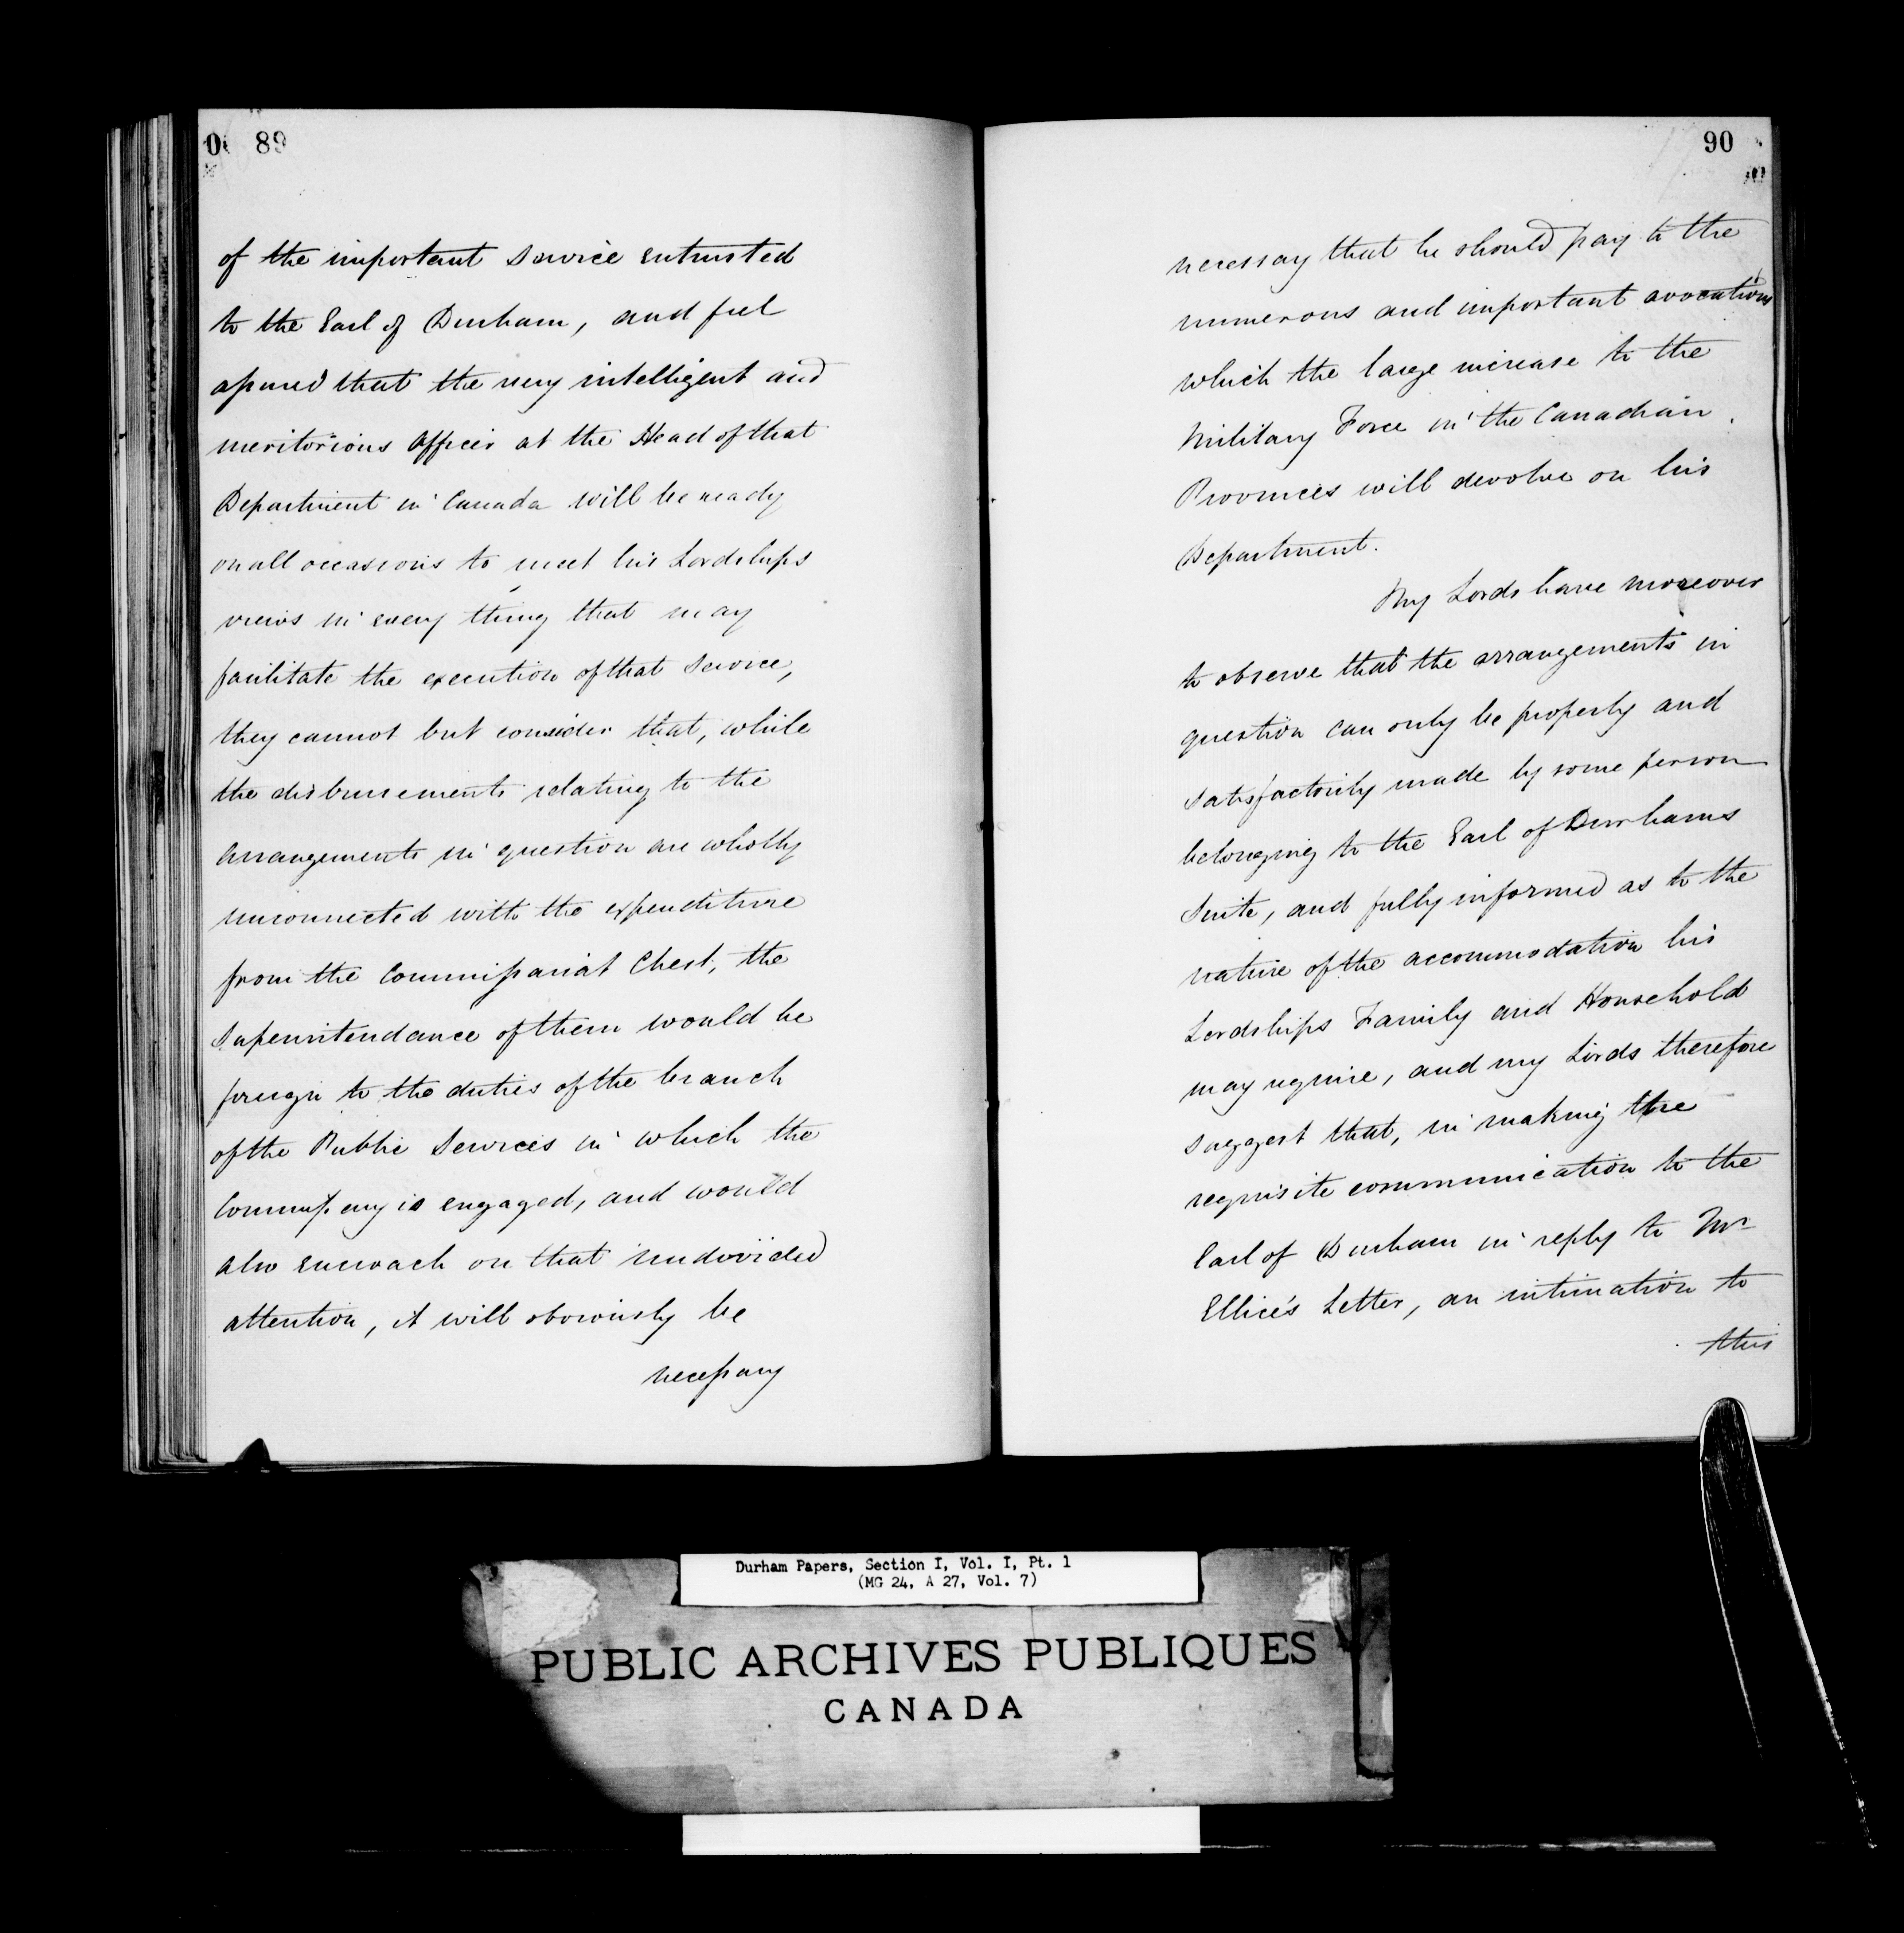 89
of the important Service entrusted
to the Earl of Durham, and feel
assured that the very intelligent and
meritorious Officer at the Head of that
Department in Canada will be ready
on all occasions to meet his Lordships
views in every thing that may
facilitate the execution of that Service,
they cannot but consider that, while
the disbursements relating to the
arrangements in question are wholly
unconnected with the expenditure
from the Commissariat Chest, the
Superintendance of them would be
foreign to the duties of the branch
of the Public Services in which the
is engaged, and would
also encroach on that undivided
attention, it will obviously be
necessary
90
necessary that he should pay to the
numerous and important avocations
which the large increase to the
Military Force in the Canadian
Provinces will devolve on his
Department.
My Lords have moreover
to observe that the arrangements in
question can only be properly and
satisfactorily made by some person
belonging to the Earl of Durhams
Suite, and fully informed as to the
nature of the accommodation his
Lordships Family and Household
may require, and my Lords therefore
suggest that, in making the
requisite communication to the
Earl of Durham in reply to Mr
Ellice's Letter, an intimation to
this
Durham Papers, Section I, Vol. I, Pt. 1
(MG 24, A 27, Vol. 7)
PUBLIC ARCHIVES PUBLIQUES
CANADA